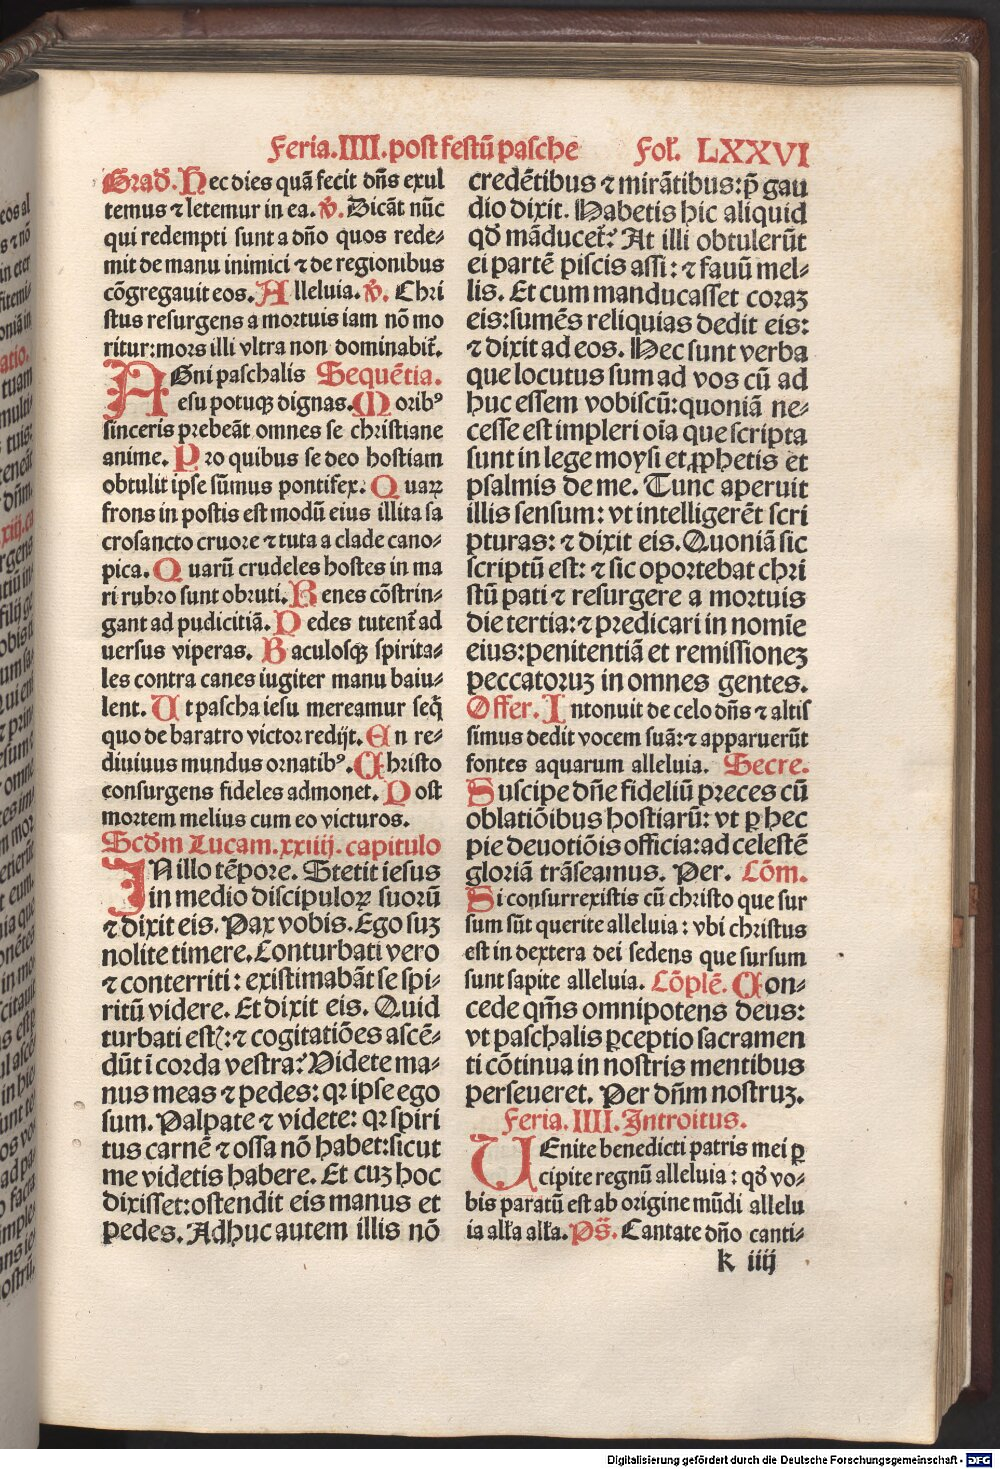 Feria.IIII.post festū pasche Fol. LXXVI
Grad. Hec dies quā fecit dn̄s exul
temus ⁊ letemur in ea. ℣. Dicāt nūc
qui redempti sunt a dn̄o quos rede⸗
mit de manu inimici ⁊ de regionibus
cōgregauit eos. Alleluia. ℣. Chri
stus resurgens a mortuis iam nō mo
ritur: mors illi vltra non dominabit̄.
AGni paschalis Sequētia.
esu potuqꝫ dignas. Moribꝰ
sinceris prebeāt omnes se christiane
anime. Pro quibus se deo hostiam
obtulit ipse sūmus pontifex. Quaꝝ
frons in postis est modū eius illita sa
crosancto cruore ⁊ tuta a clade cano⸗
pica. Quarū crudeles hostes in ma
ri rubro sunt obruti. Renes cōstrin⸗
gant ad pudicitiā. Pedes tutent̄ ad
uersus viperas. Baculosqꝫ spirita⸗
les contra canes iugiter manu baiu⸗
lent. Ut pascha iesu mereamur seq̄
quo de baratro victor redijt. En re⸗
diuiuus mundus ornatibꝰ. Christo
consurgens fideles admonet. Post
mortem melius cum eo victuros.
Scd̄m Lucam. xxiiij. capitulo
IN illo tēpore. Stetit iesus
in medio discipuloꝝ suorū
⁊ dixit eis. Pax vobis. Ego suꝫ
nolite timere. Conturbati vero
⁊ conterriti: existimabāt se spi⸗
ritū videre. Et dixit eis. Quid
turbati est̄: ⁊ cogitatiōes ascē⸗
dūt ī corda vestra? Videte ma⸗
nus meas ⁊ pedes: qꝛ ipse ego
sum. Palpate ⁊ videte: qꝛ spiri
tus carnē ⁊ ossa nō habet: sicut
me videtis habere. Et cuꝫ hoc
dixisset: ostendit eis manus et
pedes. Adhuc autem illis nō
credētibus ⁊ mirātibus: p̄ gau
dio dixit. Habetis hic aliquid
qd̄ māducet̄? At illi obtulerūt
ei partē piscis assi: ⁊ fauū mel⸗
lis. Et cum manducasset coraꝫ
eis: sumēs reliquias dedit eis:
⁊ dixit ad eos. Hec sunt verba
que locutus sum ad vos cū ad
huc essem vobiscū: quoniā ne⸗
cesse est impleri oīa que scripta
sunt in lege moysi et ꝓphetis et
psalmis de me. Tunc aperuit
illis sensum: vt intelligerēt scri
pturas: ⁊ dixit eis. Quoniā sic
scriptū est: ⁊ sic oportebat chri
stū pati ⁊ resurgere a mortuis
die tertia: ⁊ predicari in nomīe
eius: penitentiā et remissioneꝫ
peccatoruꝫ in omnes gentes.
Offer. Intonuit de celo dn̄s ⁊ altis
simus dedit vocem suā: ⁊ apparuerūt
fontes aquarum alleluia. Secre.
Suscipe dn̄e fideliū preces cū
oblatiōibus hostiarū: vt ꝑ hec
pie deuotiōis officia: ad celestē
gloriā trāseamus. Per. Cōm.
Si consurrexistis cū christo que sur
sum sūt querite alleluia: vbi christus
est in dextera dei sedens que sursum
sunt sapite alleluia. Cōplē. Con⸗
cede qm̄s omnipotens deus:
vt paschalis ꝑceptio sacramen
ti cōtinua in nostris mentibus
perseueret. Per dn̄m nostruꝫ.
Feria. IIII. Introitus.
VEnite benedicti patris mei ꝑ
cipite regnū alleluia: qd̄ vo⸗
bis paratū est ab origine mūdi allelu
ia ałła ałła. Ps̄. Cantate dn̄o canti⸗
k iiij
Digitalisierung gefördert durch die Deutsche Forschungsgemeinschaft - DFG